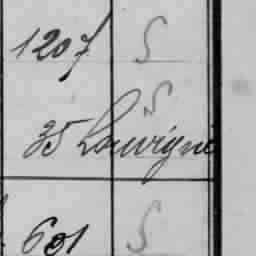 1207 S
S
35 Louvigné
601 S